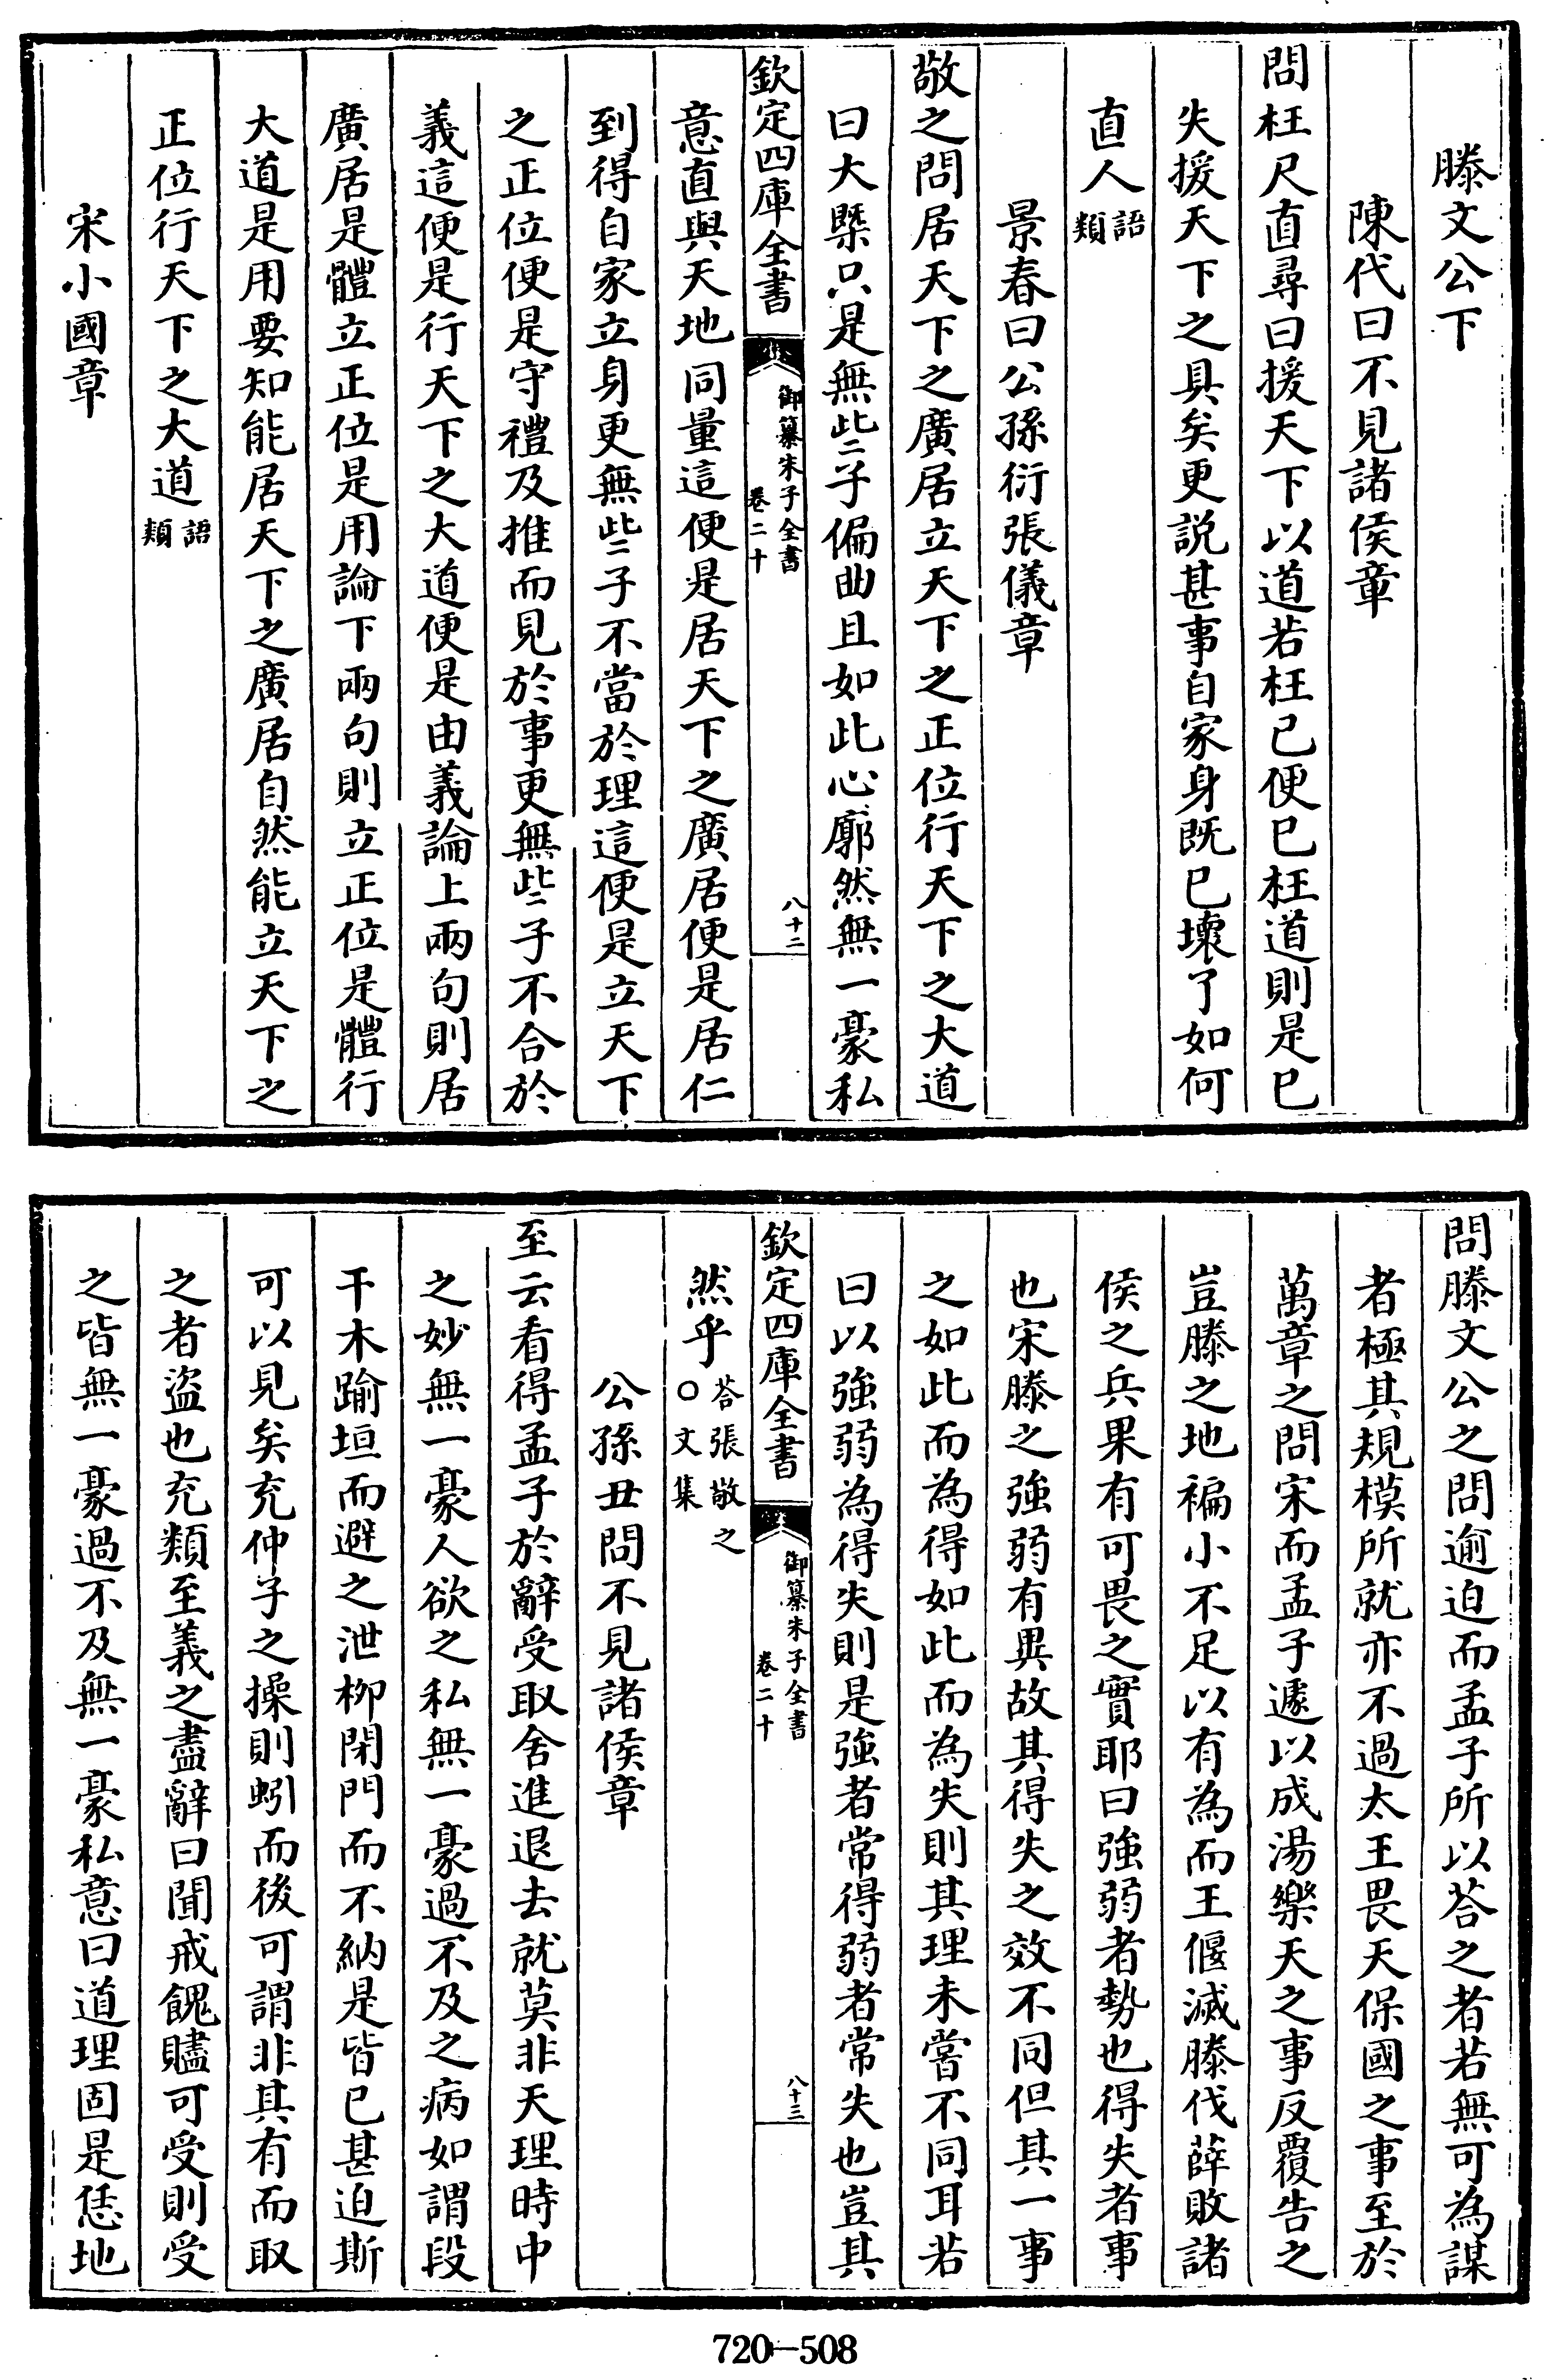 滕文公下
陳代曰不見諸侯章
問枉尺直尋曰援天下以道若枉己便已枉道則是已
失援天下之具矣更説甚事自家身既已壊了如何
直人語類
景春曰公孫衍張儀章
敬之問居天下之廣居立天下之正位行天下之大道
曰大槩只是無些子偏曲且如此心廓然無一豪私
欽定四庫全書
御纂朱子全書
卷二十
八十二
意直與天地同量這便是居天下之廣居便是居仁
到得自家立身更無些子不當於理這便是立天下
之正位便是守禮及推而見於事更無些子不合於
義這便是行天下之大道便是由義論上兩句則居
廣居是體立正位是用論下兩句則立正位是體行
大道是用要知能居天下之廣居自然能立天下之
正位行天下之大道語類
宋小國章
問滕文公之問逾迫而孟子所以荅之者若無可為謀
者極其規模所就亦不過太王畏天保國之事至於
萬章之問宋而孟子遽以成湯樂天之事反覆告之
豈滕之地褊小不足以有為而王偃滅滕伐薛敗諸
侯之兵果有可畏之實耶曰強弱者勢也得失者事
也宋滕之強弱有異故其得失之效不同但其一事
之如此而為得如此而為失則其理未嘗不同耳若
曰以強弱為得失則是強者常得弱者常失也豈其
欽定四庫全書
御纂朱子全書
卷二十
八十三
然乎荅張敬之○文集
公孫丑問不見諸侯章
至云看得孟子於辭受取舍進退去就莫非天理時中
之妙無一豪人欲之私無一豪過不及之病如謂段
干木踰垣而避之泄柳閉門而不納是皆已甚迫斯
可以見矣充仲子之操則蚓而後可謂非其有而取
之者盜也充類至義之盡辭曰聞戒餽贐可受則受
之皆無一豪過不及無一豪私意曰道理固是恁地
720—508